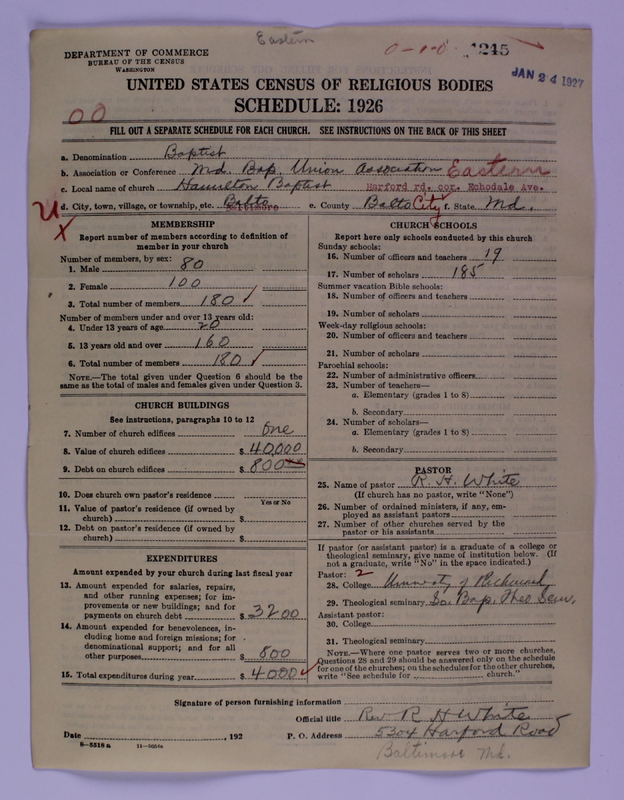 Eastern
DEPARTMENT OF COMMERCE
BUREAU OF THE CENSUS
WASHINGTON
0-1-0 1245
JAN 24 1927
UNITED STATES CENSUS OF RELIGIOUS BODIES
SCHEDULE: 1926
00
FILL OUT A SEPARATE SCHEDULE FOR EACH CHURCH. SEE INSTRUCTIONS ON THE BACK OF THIS SHEET
a. Denomination Baptist
b. Association or Conference Md. Bap. Union Association Eastern
c. Local name of church Hamilton Baptist Harford rd. cor. Echodale Ave.
d. City, town, village, or township, etc. Balto e. County Balto City f. State Md.
U
X
MEMBERSHIP
Report number of members according to definition of
member in your church
Number of members, by sex:
1. Male 80
2. Female 100
3. Total number of members 180
Number of members under and over 13 years old:
4. Under 13 years of age 20
5. 13 years old and over 160
6. Total number of members 180
NOTE.—The total given under Question 6 should be the
same as the total of males and females given under Question 3.
CHURCH BUILDINGS
See instructions, paragraphs 10 to 12
7. Number of church edifices One
8. Value of church edifices $ 40,000
9. Debt on church edifices $ 800
10. Does church own pastor's residence
Yes or No
11. Value of pastor's residence (if owned by
church) $
12. Debt on pastor's residence (if owned by
church) $
EXPENDITURES
Amount expended by your church during last fiscal year
13. Amount expended for salaries, repairs,
and other running expenses; for im-
provements or new buildings; and for
payments on church debt $ 3200
14. Amount expended for benevolences, in-
cluding home and foreign missions; for
denominational support; and for all
other purposes $ 800
15. Total expenditures during year $ 4000
CHURCH SCHOOLS
Report here only schools conducted by this church
Sunday schools:
16. Number of officers and teachers 19
17. Number of scholars 185
Summer vacation Bible schools:
18. Number of officers and teachers
19. Number of scholars
Week-day religious schools:
20. Number of officers and teachers
21. Number of scholars
Parochial schools:
22. Number of administrative officers
23. Number of teachers—
a. Elementary (grades 1 to 8)
b. Secondary
24. Number of scholars—
a. Elementary (grades 1 to 8)
b. Secondary
PASTOR
25. Name of pastor R. H. White
(If church has no pastor, write "None")
26. Number of ordained ministers, if any, em-
ployed as assistant pastors
27. Number of other churches served by the
pastor or his assistants
If pastor (or assistant pastor) is a graduate of a college or
theological seminary, give name of institution below. (If
not a graduate, write "No" in the space indicated.)
Pastor: 2
28. College University of Richmond
29. Theological seminary So. Bap. Theo Sem.
Assistant pastor:
30. College
31. Theological seminary
NOTE.—Where one pastor serves two or more churches,
Questions 28 and 29 should be answered only on the schedule
for one of the churches; on the schedules for the other churches,
write "See schedule for church."
Signature of person furnishing information
Official title Rev R H White
Date , 192 P. O. Address 5304 Harford Road
8-5518 a
Baltimore Md.